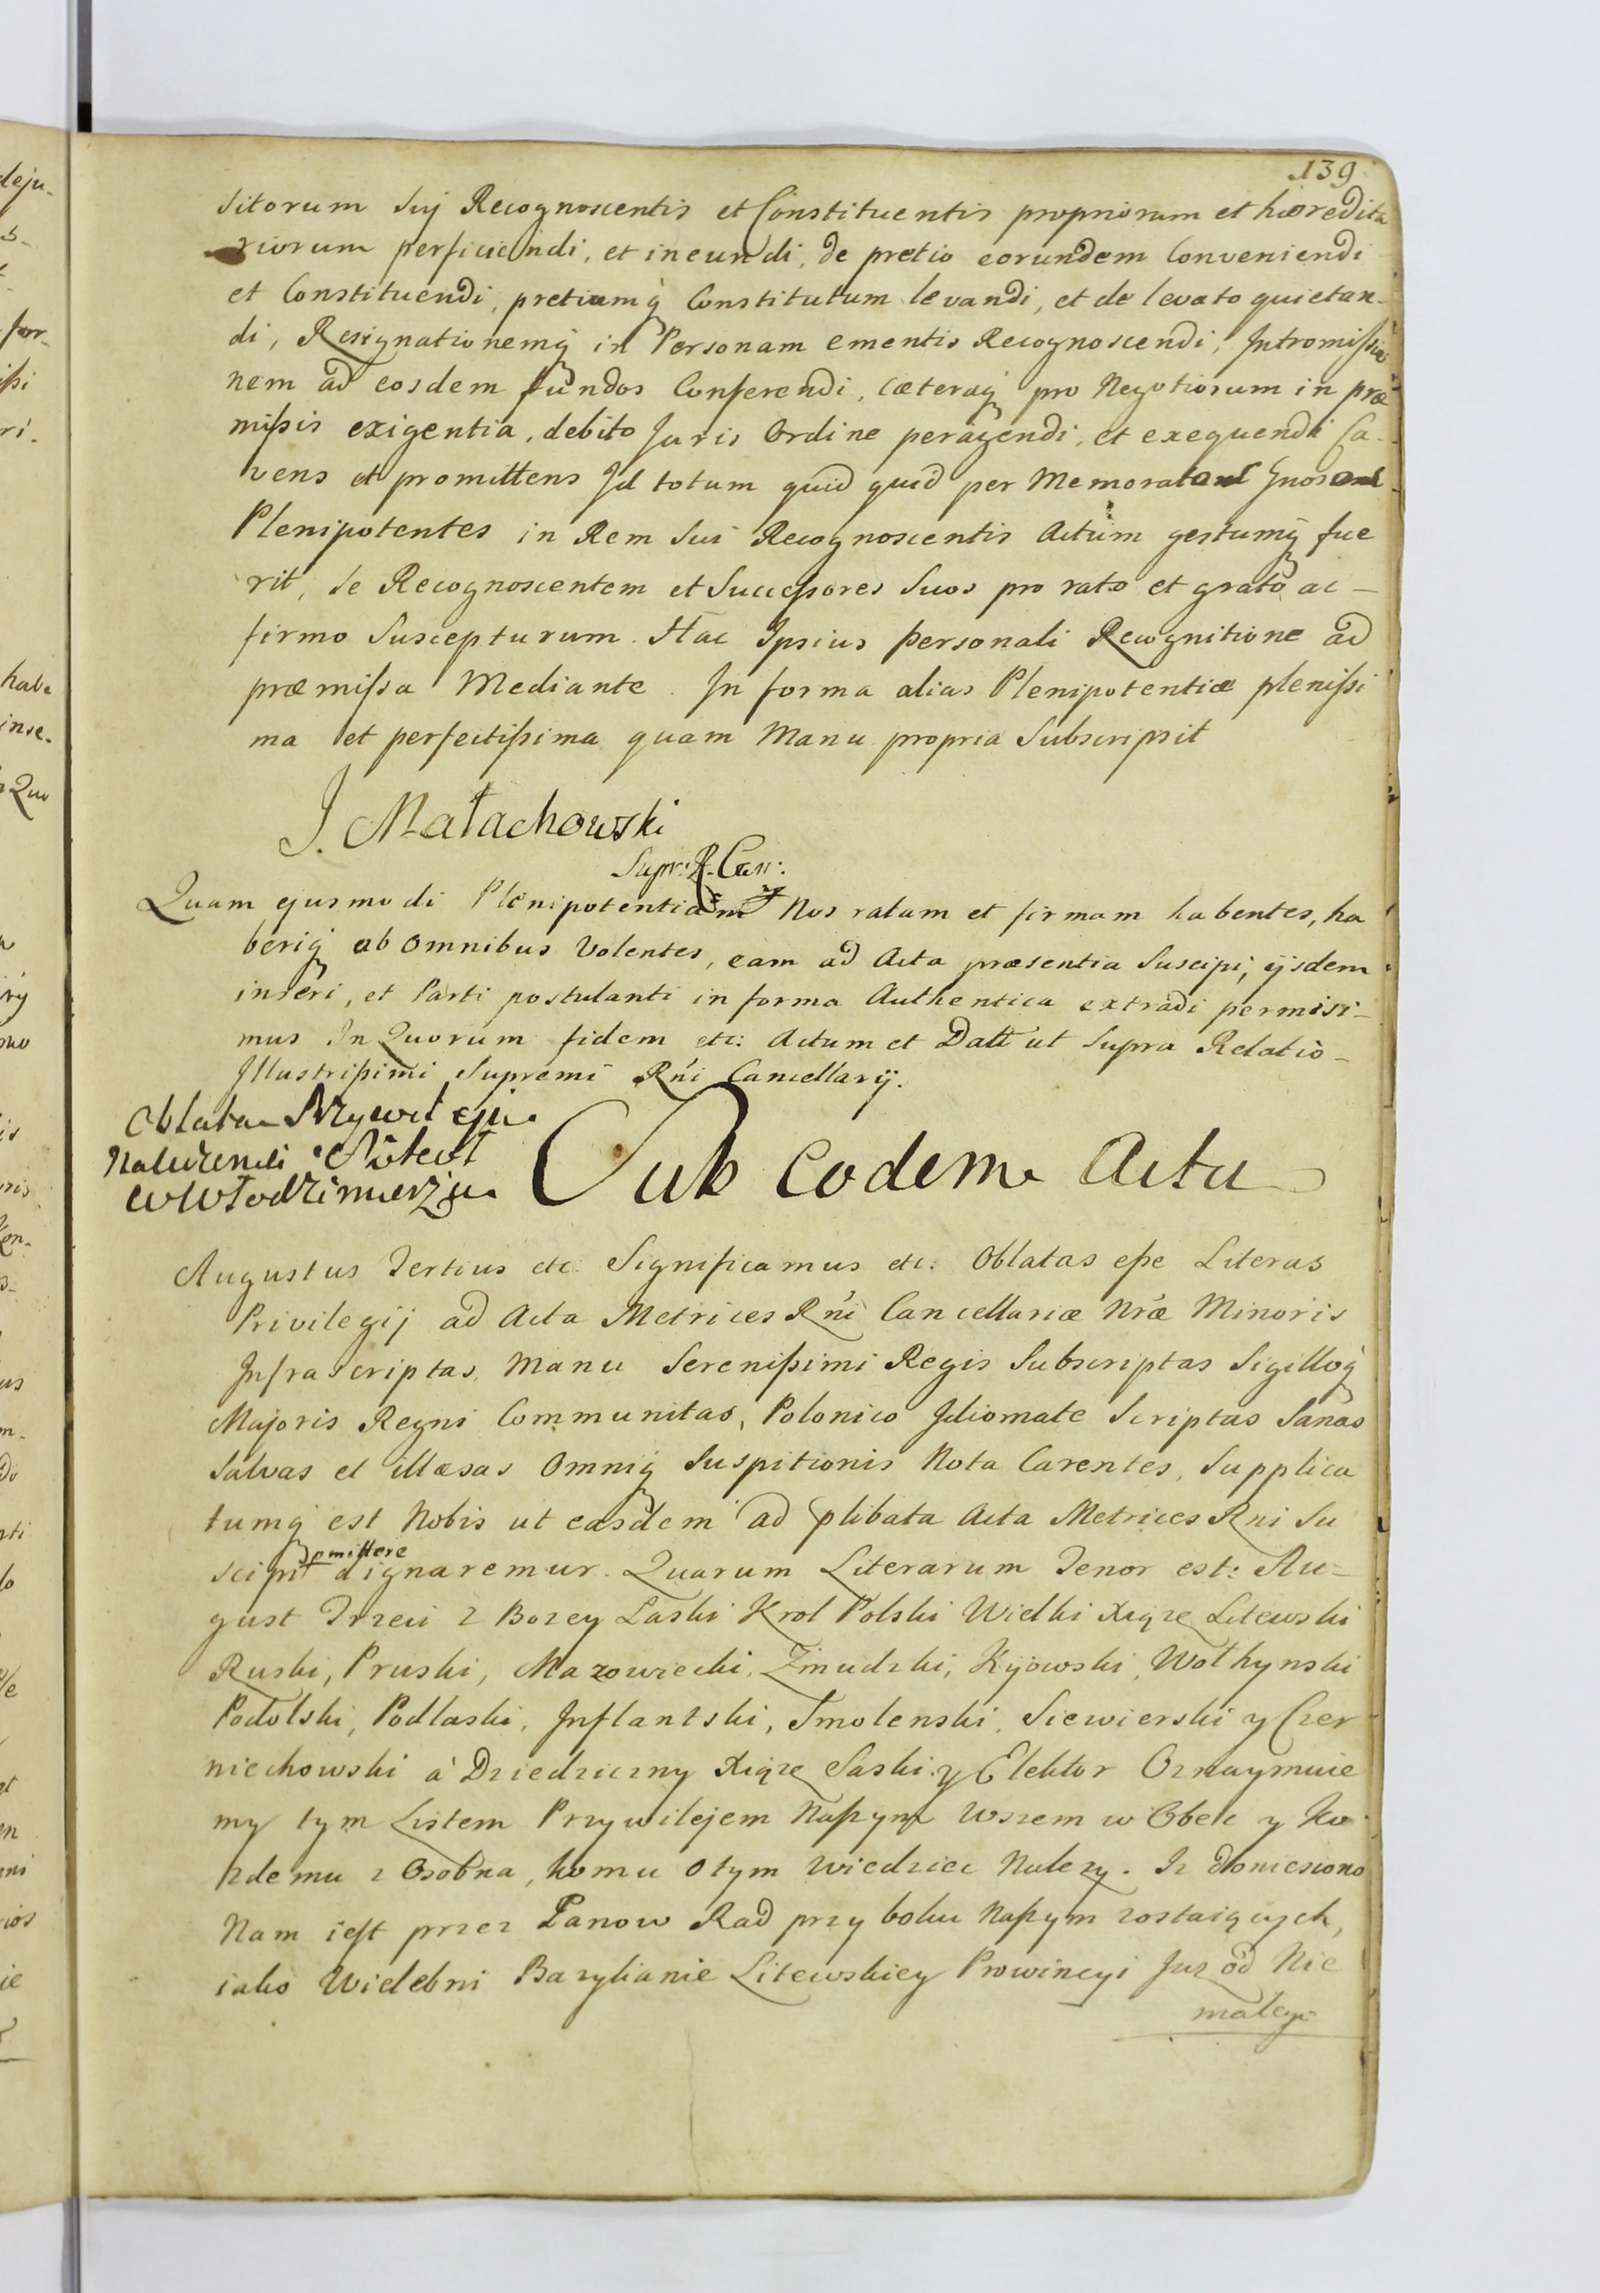 139
sitorum suj Recognoscentis et Constituentis propriorum et hæredita
riorum perficiendi, et ineundi, de pretio eorundem Conveniendi
et Constituendi, pretiumq́ Constitutum levandi, et de levato quietan-
di, Resignationemq́ in Personam ementis Recognoscendi, Intromissio
nem ad eosdem fundos Conferendi, cæteraq́ pro Negotiorum in præ
missis exigentia, debito Juris Ordine peragendi, et exequendi Ca-
vens et promittens Id totum quid quid per Memorat
Plenipotentes in Rem sui Recognoscentis Actum gestumq́ fue
rit, se Recognoscentem et Successores suos pro rato et grato ac-
firmo Suscepturum. Hac Ipsius personali Recognitione ad
præmissa Mediante. In forma alias Plenipotentiæ plenissi
ma et perfectissima quam Manu propria Subscripsit
J. Małachowski
Supr: R. Can:
Quam ejusmodi Plenipotentiam Nos ratam et firmam habentes, ha
beriq́ ab Omnibus Volentes, eam ad Acta præsentia Suscipi, ijsdem
inseri, et Parti postulanti in forma Authentica extradi permisi-
mus In Quorum fidem etc: Actum et Datt ut Supra Relatio-
Illustrissimi Supremi Rńi Cancellarij.
Oblata Przywileju
we Włodzimierzu
Sub eodem Actu
Augustus Tertius etc: Significamus etc: Oblatas esse Literas
Privilegij ad Acta Metrices Rńi Cancellariæ Nrǽ Minoris
Infrascriptas, Manu Serenissimi Regis Subscriptas Sigilloq́
Majoris Regni Communitas, Polonico Idiomate Scriptas Sanas
Salvas et illæsas Omniq́ Suspitionis Nota Carentes, Supplica
tumq́ est Nobis ut easdem ad plibata Acta Metrices Rni Su
scipi pmittere dignaremur. Quarum Literarum Tenor est: Au-
gust Trzeci z Bozey Łaski Krol Polski Wielki Xiąże Litewski
Ruski, Pruski, Mazowiecki, Żmudzki, Kijowski, Wołhynski
Podolski, Podlaski, Inflantski, Smolenski, Siewierski y Czer
niechowski à Dziedziczny Xiąże Saski y Elektor Oznaymuie
my tym Listem Przywilejem Naszym Wszem w Obec y Ka
zdemu z Osobna, komu o tym wiedziec Nalezy. Iz doniesiono
Nam iest przez Panow Rad przy boku Naszym zostaiących,
iako Wielebni Bazylianie Litewskiey Prowincyi Juz od Nie
małego